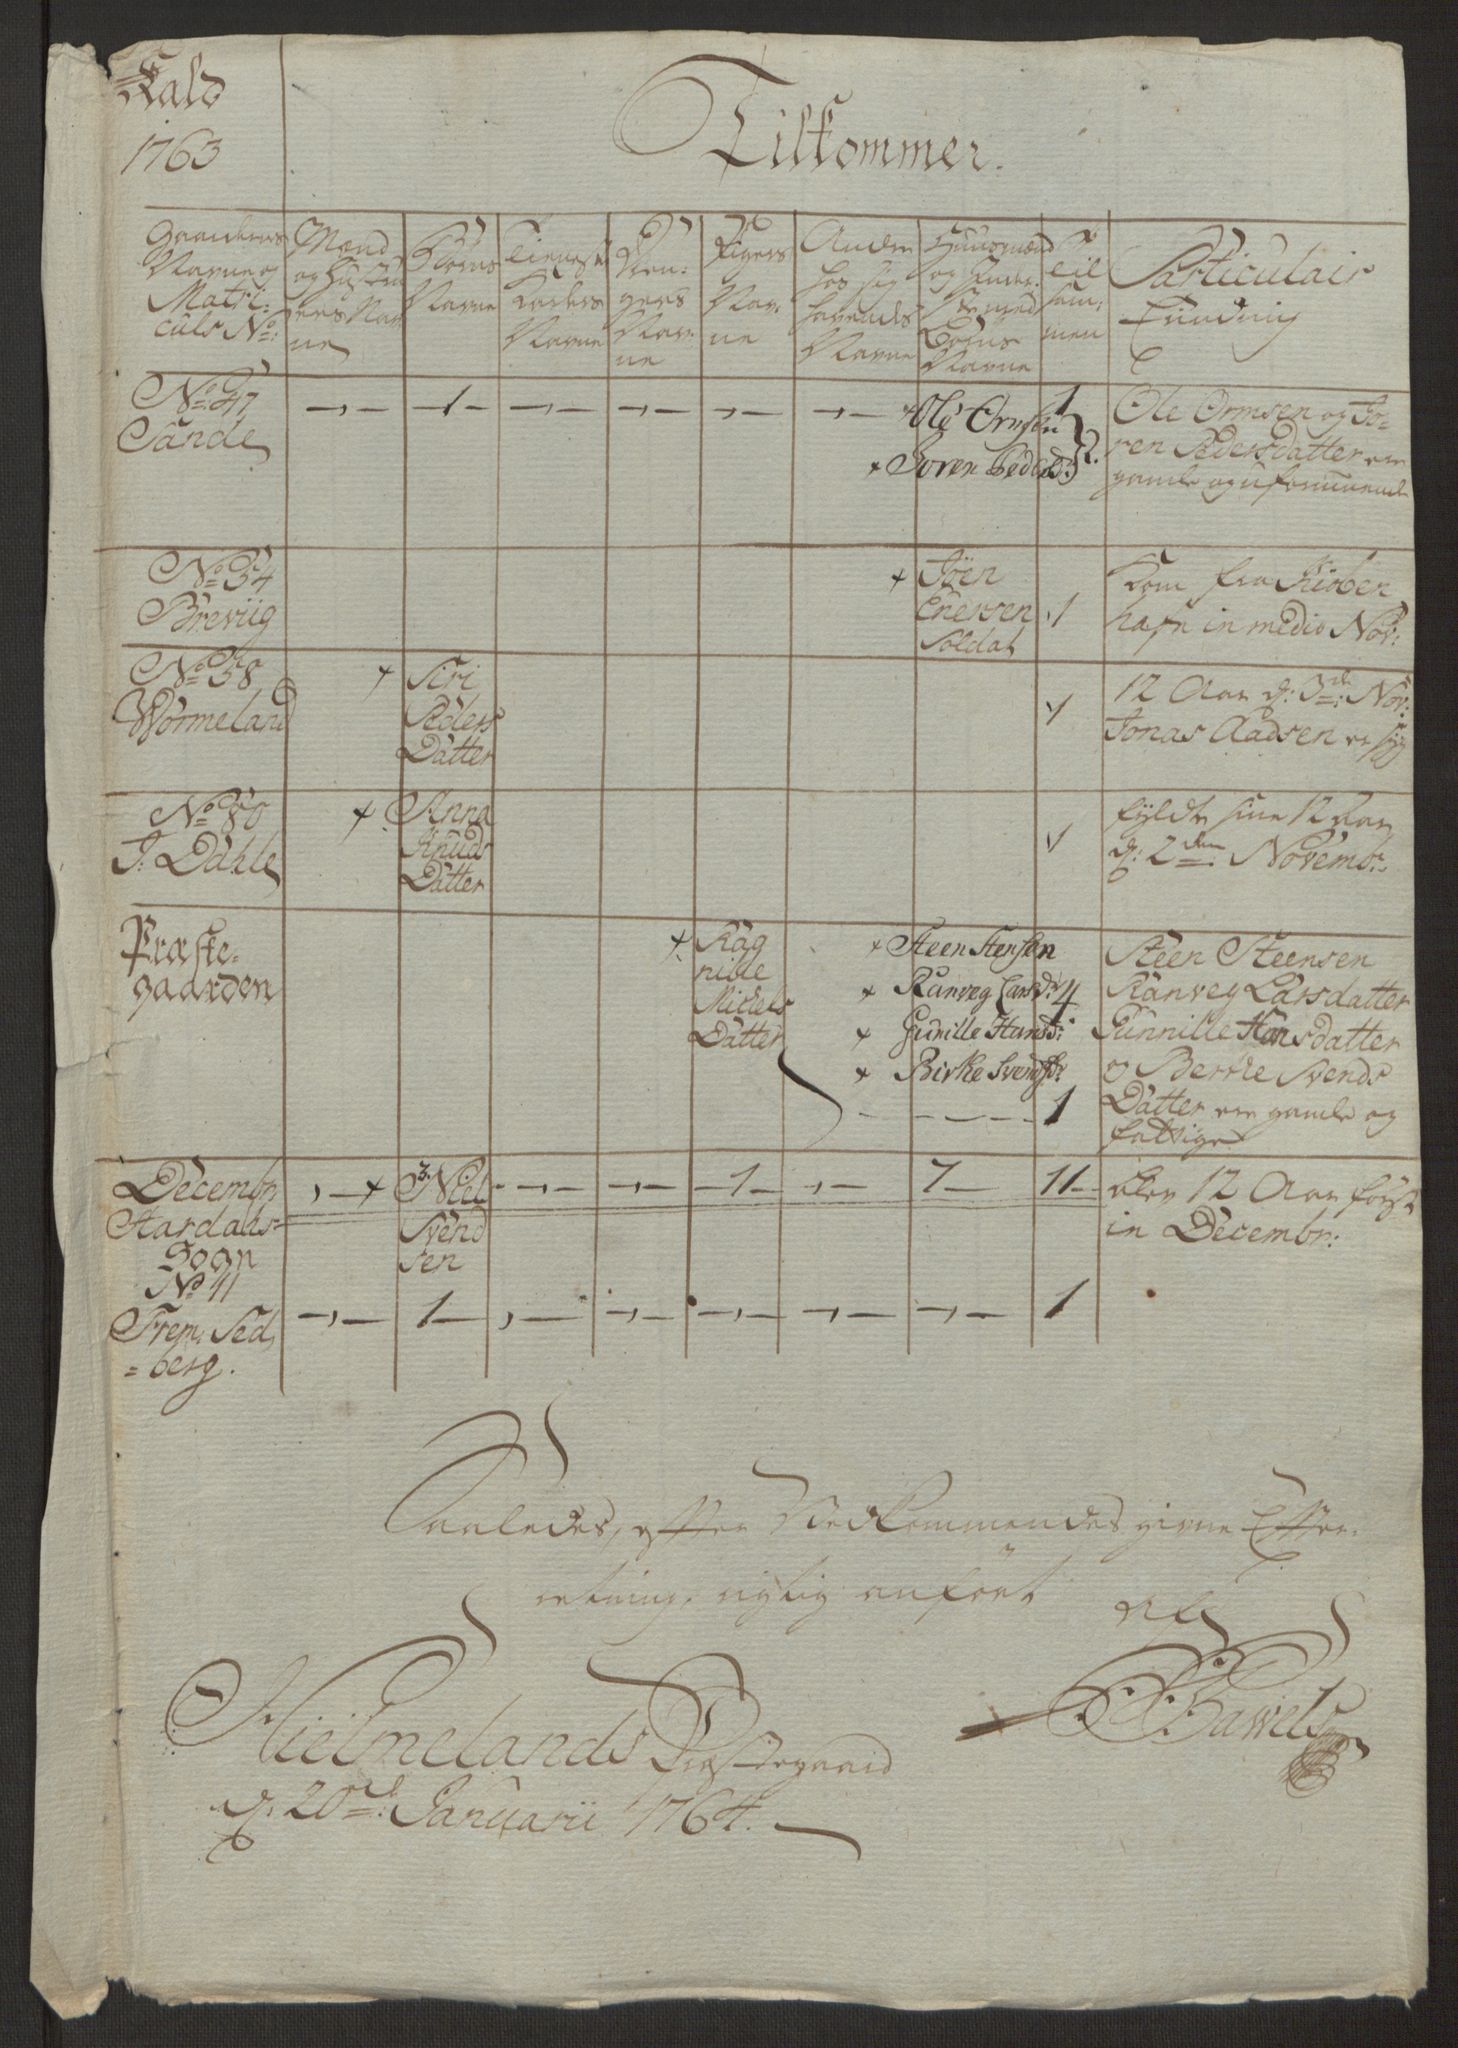 Kald
1763
Tilkommer.
Gaardenes Navne og Matri: culs No:
Mænd og Hustru ers Nav ne
Børns Navne
Tieneste Karles Navne
Dren: gers Nav: ne
Pigers Nav: ne
Andre hos sig havendes Navne
Huusmænd og Inder: ster med Børns Navne
Til sam: men
Particulair
No: 47 Sande
1
Ole Ormsen
Soren Peders D:
1
2.
Ole Ormsen og So=
ren Pedersdatter ere
gamle og uformuende
No: 54
Breviig
Joen
Enersen
Soldat
1
Kom fra Kiøben
hafn in medio Nov:
No: 58
Wormeland
Siri
Peders
Datter
1
12 Aar d: 3de Nov:
Jonas Aadsen er syg
No: 80
J: Dahle
Anna
Knuds
Datter
1
fyldte sine 12 Aar
d: 2den Novembr:
Præste-
gaarden
Rag
nille
Mickels
Datter
Steen Stensen
Ranveg Lars Dr
Gunille Hans D:
Birke Svends Dr
4
1
Steen Steensen
Ranveg Larsdatter
Gunnille Hansdatter
og Berthe Svends
Datter ere gamle og
fattige
Decembr
Hardals=
Sogn
No 11
Frem: Sed
=berg.
3
Niel
Svend
sen
1
7
11
blev 12 Aar først
in Decembr:
1
1
Saaledes, efter Vedkommendes givne Efter:
retning, rigtig anført
Af
Hielmelands Præstegaard
d: 20de Januarii 1764.
Bawels